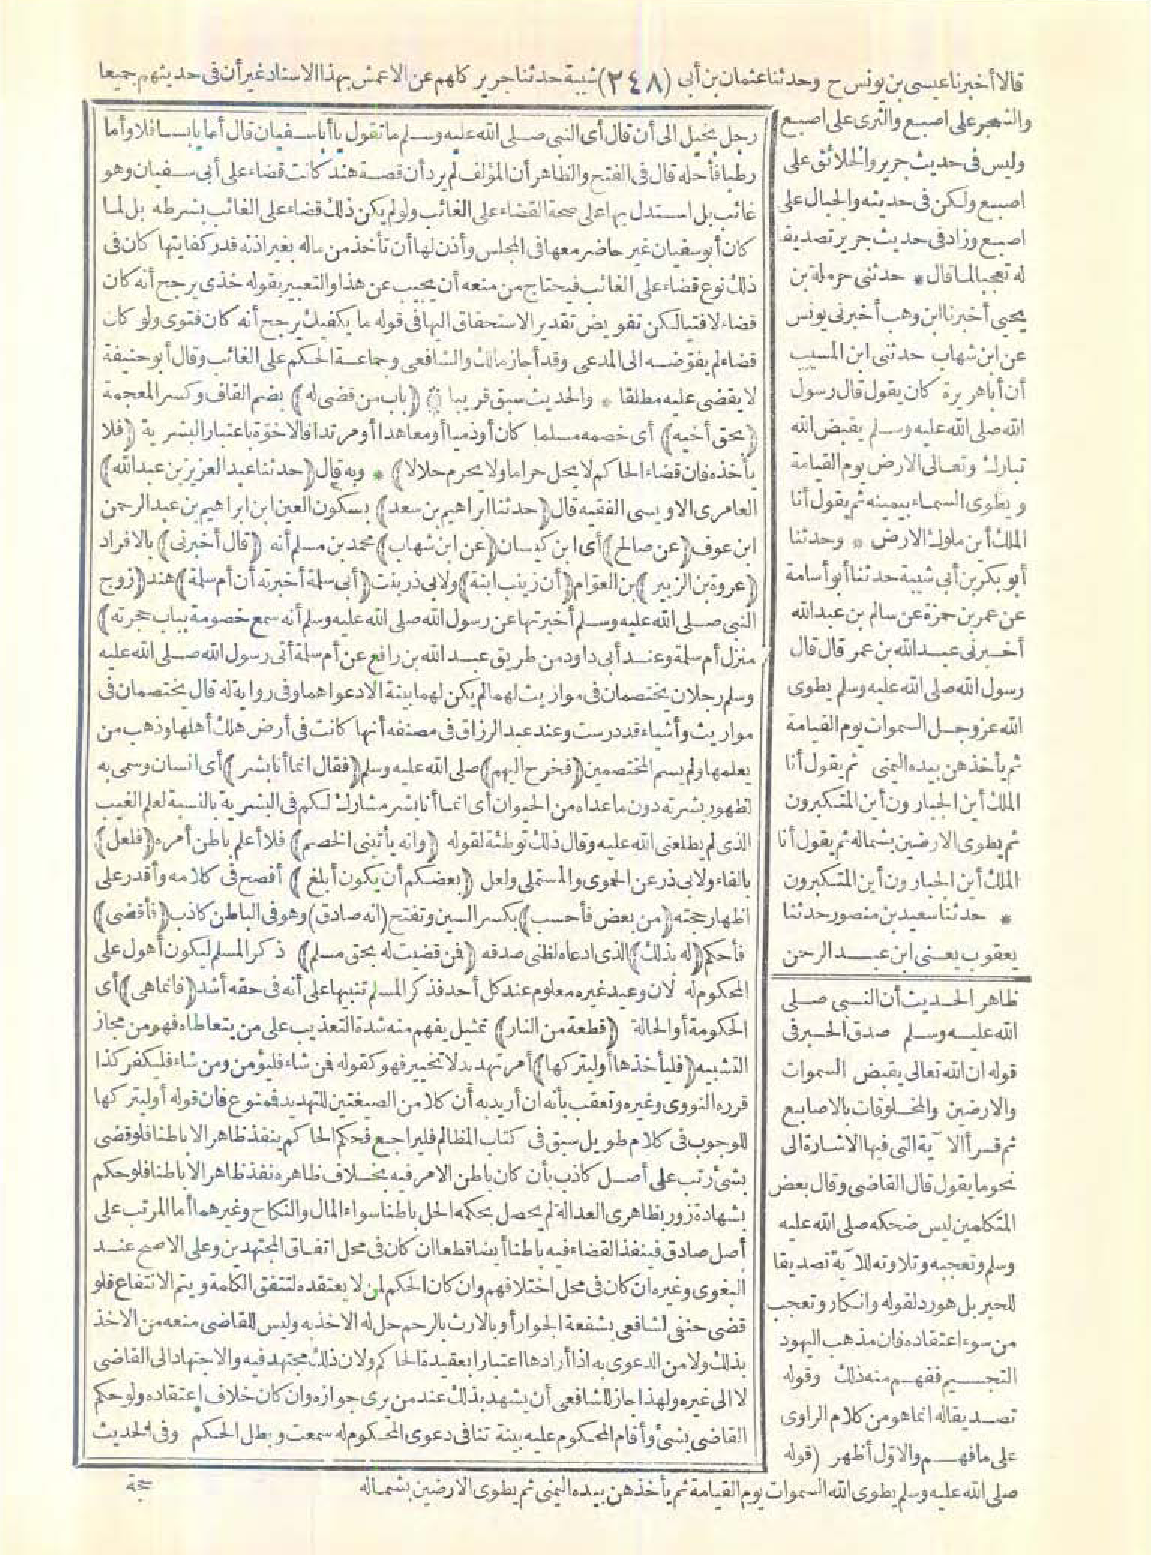 قالا أخبرنا عيسى بن يونس ح وحدثنا عثمان بن أبي (٢٤٨) شيبة حدثنا جرير كلهم عن الاعمش بهذا الاسناد غير أن في حديثهم جميعا
والشجر على اصبع والثرى على اصبع
وليس في حديث جرير والخلائق على
اصبع ولكن في حديثه والجبال على
اصبع وزاد في حديث جرير تصديقا
له تعجبا لما قال * حدثنى حرملة بن
يحيى أخبرنا ابن وهب أخبرنى يونس
عن ابن شهاب حدثنى ابن المسيب
أن أباهريرة كان يقول قال رسول
الله صلى الله عليه وسلم يقبض الله
تبارك وتعالى الارض يوم القيامة
ويطوى السماء بيمينه ثم يقول أنا
الملك أين ملوك الارض * وحدثنا
أبو بكر بن أبي شيبة حدثنا أبو أسامة
عن عمر بن حمزة عن سالم بن عبدالله
أخبرنى عبد الله بن عمر قال قال
رسول الله صلى الله عليه وسلم يطوى
الله عز وجل السموات يوم القيامة
ثم يأخذهن بيده اليمنى ثم يقول أنا
الملك أين الجبارون أين المتكبرون
ثم يطوى الارضين بشماله ثم يقول أنا
الملك أين الجبارون أين المتكبرون
* حدثنا سعيد بن منصور حدثنا
يعقوب يعنى ابن عبد الرحمن
ظاهر الحديث أن النبى صلى
الله عليه وسلم صدق الحبر في
قوله ان الله تعالى يقبض السموات
والارضين والمخلوقات بالاصابع
ثم قرأ الآية التى فيها الاشارة الى
نحو ما يقول قال القاضى وقال بعض
المتكلمين ليس ضحكه صلى الله عليه
وسلم وتعجبه وتلاوته للآية تصديقا
للحبر بل هو رد لقوله وانكار وتعجب
من سوء اعتقاده فان مذهب اليهود
التجسيم ففهم منه ذلك وقوله
تصديقا له انما هو من كلام الراوى
على ما فهم والاول أظهر (قوله
صلى الله عليه وسلم يطوى الله السموات يوم القيامة ثم يأخذهن بيده اليمنى ثم يطوى الارضين بشماله
رجل يخيل الى أن قال أى النبى صلى الله عليه وسلم ما تقول يا أبا سفيان قال أما يابسا فلا وأما
رطبا فأحله قال في الفتح والظاهر أن المؤلف لم يرد أن قصة هند كانت قضاء على أبى سفيان وهو
غائب بل استدل بها على صحة القضاء على الغائب ولو لم يكن ذلك قضاء على الغائب بشرطه بل لما
كان أبو سفيان غير حاضر معها في المجلس وأذن لها أن تأخذ من ماله بغير اذنه قدر كفايتها كان في
ذلك نوع قضاء على الغائب فيحتاج من منعه أن يجيب عن هذا والتعبير بقوله خذى يرجح أنه كان
قضاء لا فتيا لكن تفويض تقدير الاستحقاق اليها في قوله ما يكفيك يرجح أنه كان فتوى ولو كان
قضاء لم يفوضه الى المدعى وقد أجاز مالك والشافعى وجماعة الحكم على الغائب وقال أبو حنيفة
لا يقضى عليه مطلقا * والحديث سبق قريبا (باب من قضى له) بضم القاف وكسر المعجمة
(بحق أخيه) أى خصمه مسلما كان أو ذميا أو معاهدا أو مرتدا فالاخوة باعتبار البشرية (فلا
يأخذه فان قضاء الحاكم لا يحل حراما ولا يحرم حلالا) * وبه قال (حدثنا عبد العزيز بن عبدالله)
العامرى الاويسى الفقيه قال (حدثنا ابراهيم بن سعد) بسكون العين ابن ابراهيم بن عبد الرحمن
ابن عوف (عن صالح) أى ابن كيسان (عن ابن شهاب) محمد بن مسلم أنه (قال أخبرنى) بالافراد
(عروة بن الزبير) بن العوام (أن زينب ابنة) ولابى ذر بنت (أبى سلمة أخبرته أن أم سلمة) هند (زوج
النبى صلى الله عليه وسلم أخبرتها عن رسول الله صلى الله عليه وسلم أنه سمع خصومة بباب حجرته)
منزل أم سلمة وعند أبى داود من طريق عبد الله بن رافع عن أم سلمة أتى رسول الله صلى الله عليه
وسلم رجلان يختصمان في مواريث لهما لم يكن لهما بينة الا دعواهما وفي رواية له قال يختصمان في
مواريث وأشياء قد درست وعند عبد الرزاق في مصنفه أنها كانت في أرض هلك أهلها وذهب من
يعلمها ولم يسم المختصمين (فخرج اليهم) صلى الله عليه وسلم (فقال انما أنا بشر) أى انسان وسمى به
لظهور بشرته دون ما عداه من الحيوان أى انما أنا بشر مشارك لكم في البشرية بالنسبة لعلم الغيب
الذى لم يطلعنى الله عليه وقال ذلك توطئة لقوله (وانه يأتينى الخصم) فلا أعلم باطن أمره (فلعل)
بالفاء ولابى ذر عن الحموى والمستملى ولعل (بعضكم أن يكون أبلغ) أفصح في كلامه وأقدر على
اظهار حجته (من بعض فأحسب) بكسر السين وتفتح (انه صادق) وهو في الباطن كاذب (فأقضى)
فأحكم (له بذلك) الذى ادعاه لظنى صدقه (فمن قضيت له بحق مسلم) ذكر المسلم ليكون أهول على
المحكوم له لان وعيد غيره معلوم عند كل أحد فذكر المسلم تنبيها على أنه في حقه أشد (فانما هى) أى
الحكومة أو الحالة (قطعة من النار) تمثيل يفهم منه شدة التعذيب على من يتعاطاه فهو من مجاز
التشبيه (فليأخذها أو ليتركها) أمر تهديد لا تخيير فهو كقوله فمن شاء فليؤمن ومن شاء فليكفر كذا
قرره النووى وغيره وتعقب بأنه ان أريد به أن كلا من الصيغتين للتهديد فممنوع فان قوله أو ليتركها
للوجوب في كلام طويل سبق في كتاب المظالم فليراجع فحكم الحاكم ينفذ ظاهرا لا باطنا فلو قضى
بشئ رتب على أصل كاذب بأن كان باطن الامر فيه بخلاف ظاهره نفذ ظاهرا لا باطنا فلو حكم
بشهادة زور بظاهرى العدالة لم يحصل بحكمه الحل باطنا سواء المال والنكاح وغيرهما أما المرتب على
أصل صادق فينفذ القضاء فيه باطنا أيضا قطعا ان كان في محل اتفاق المجتهدين وعلى الاصح عند
البغوى وغيره ان كان في محل اختلافهم وان كان الحكم لمن لا يعتقده لتتفق الكلمة ويتم الانتفاع فلو
قضى حنفى لشافعى بشفعة الجوار أو بالارث بالرحم حل له الاخذ به وليس للقاضى منعه من الاخذ
بذلك ولا من الدعوى به اذا أرادها اعتبارا بعقيدة الحاكم ولان ذلك مجتهد فيه والاجتهاد الى القاضى
لا الى غيره ولهذا جاز للشافعى أن يشهد بذلك عند من يرى جوازه وان كان خلاف اعتقاده ولو حكم
القاضى بشئ وأقام المحكوم عليه بينة تنافى دعوى المحكوم له سمعت وبطل الحكم وفي الحديث
حجة